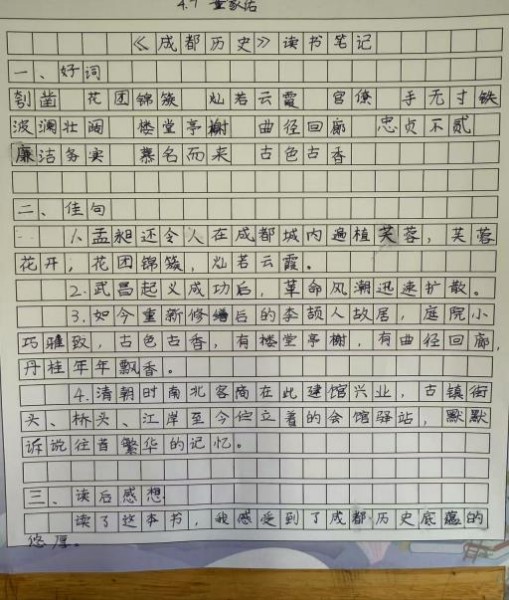 4.7 童家佑
《成都历史》读书笔记
一、好词
刳凿 花团锦簇 灿若云霞 官僚 手无寸铁
波澜壮阔 楼堂亭榭 曲径回廊 忠贞不贰
廉洁务实 慕名而来 古色古香
二、佳句
1.孟昶还令人在成都城内遍植芙蓉，芙蓉
花开，花团锦簇，灿若云霞。
2.武昌起义成功后，革命风潮迅速扩散。
3.如今重新修缮后的李颉人故居，庭院小
巧雅致，古色古香，有楼堂亭榭，有曲径回廊，
丹桂年年飘香。
4.清朝时南北客商在此建馆兴业，古镇街
头、桥头、江岸至今伫立着的会馆驿站，默默
诉说往昔繁华的记忆。
三、读后感想
读了这本书，我感受到了成都历史底蕴的
悠厚。